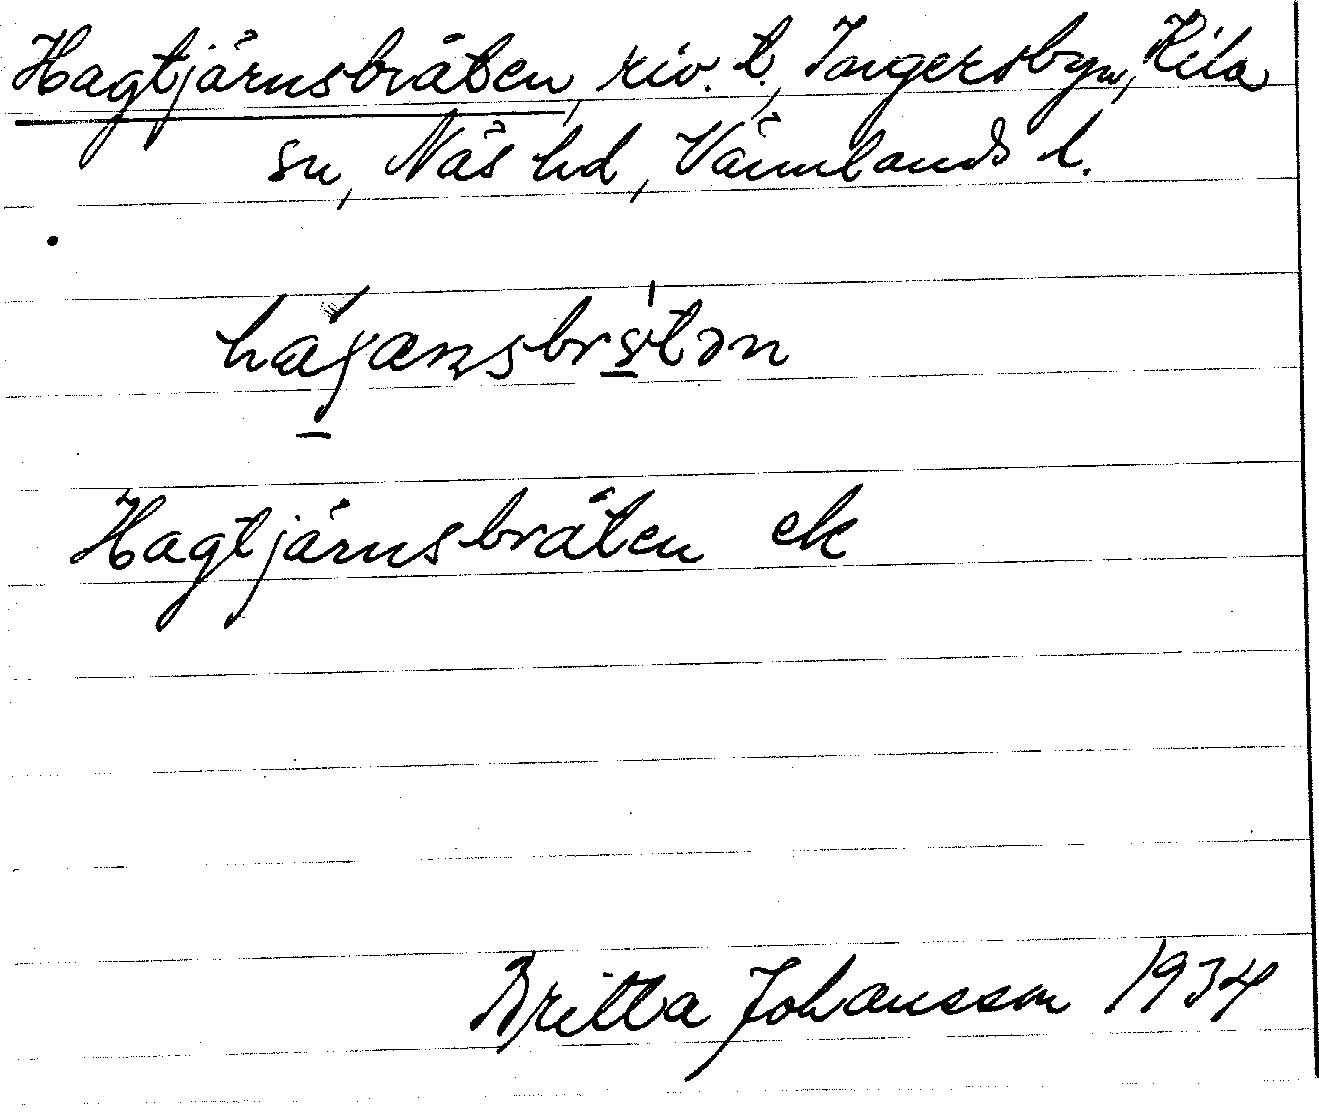 Hagtjärnsbråten, riv. t., Ingersbyn, Kila
sn, Näs hd, Värmlands l.
Hagtjärnsbråten ek
Britta Johansson 1934